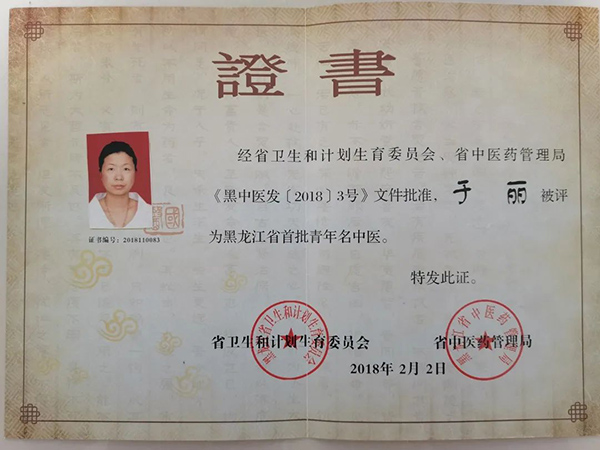 證書
经省卫生和计划生育委员会、省中医药管理局
《黑中医发〔2018〕3号》文件批准，于丽 被评
为黑龙江省首批青年名中医。
特发此证。
证书编号：2018110083
省卫生和计划生育委员会
省中医药管理局
2018年2月2日
黑龙江省卫生和计划生育委员会
黑龙江省中医药管理局